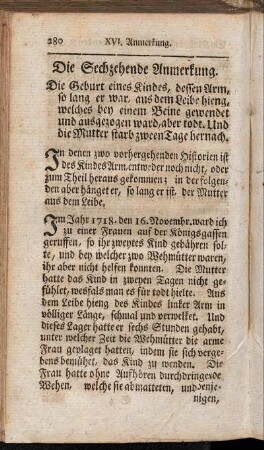 280 XVI. Anmerkung.
Die Sechzehende Anmerkung.
Die Geburt eines Kindes, dessen Arm,
so lang er war, aus dem Leibe hieng,
welches bey einem Beine gewendet
und ausgezogen ward, aber todt. Und
die Mutter starb zween Tage hernach.
In denen zwo vorhergehenden Historien ist
des Kindes Arm entweder noch nicht, oder
zum Theil heraus gekommen; in der folgen-
den aber hänget er, so lang er ist, der Mutter
aus dem Leibe.
Im Jahr 1718. den 16. Novembr. ward ich
zu einer Frauen auf der Königsgassen
geruffen, so ihr zweytes Kind gebähren sol-
te, und bey welcher zwo Wehmütter waren,
ihr aber nicht helfen konten. Die Mutter
hatte das Kind in zweyen Tagen nicht ge-
fühlet, weßfals man es für todt hielte. Aus
dem Leibe hieng des Kindes linker Arm in
völliger Länge, schmal und verwelket. Und
dieses Lager hatte er sechs Stunden gehabt,
unter welcher Zeit die Wehmütter die arme
Frau geplaget hatten, indem sie sich verge-
bens bemühet, das Kind zu wenden. Die
Frau hatte ohne Aufhören durchdringende
Wehen, welche sie abmatteten, und denje-
nigen,